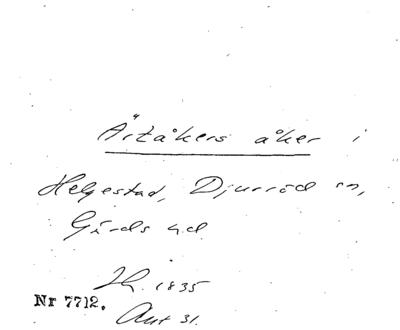 Ärtåkers åker i
Helgestad, Djurröd sn,
Gärds hd
Lh. 1835
Nr 7712.
Akt 31.